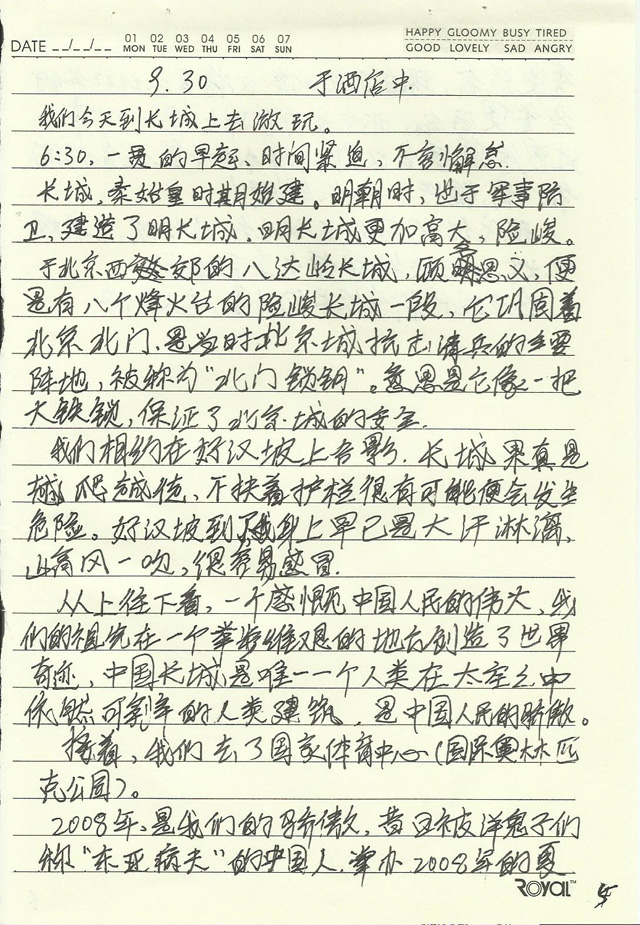 DATE __/__/__ 01 MON 02 TUE 03 WED 04 THU 05 FRI 06 SAT 07 SUN HAPPY GLOOMY BUSY TIRED
GOOD LOVELY SAD ANGRY
9.30 于酒店中.
我们今天到长城上去游玩。
6:30,一贯的早起、时间紧迫,不容懈怠.
长城,秦始皇时期始建。明朝时,出于军事防
卫,建造了明长城.明长城更加高大,险峻。
于北京西郊的八达岭长城,顾名思义,便
是有八个烽火台的险峻长城一段,它巩固着
北京北门.是当时北京城抗击清兵的主要
阵地,被称为“北门锁钥”。意思是它像一把
大铁锁,保证了北京城的安全.
我们相约在好汉坡上合影.长城果真是
越爬越陡,不扶着护栏很有可能便会发生
危险。好汉坡到了,我身上早已是大汗淋漓,
山高风一吹,很容易感冒.
从上往下看,一个感慨死中国人民的伟大,我
们的祖先在一个举步维艰的地方创造了世界
奇迹,中国长城是唯一一个人类在太空之中
依然可看到的人类建筑,是中国人民的骄傲。
接着,我们去了国家体育中心(国际奥林匹
克公园)。
2008年、是我们的骄傲,昔日被洋鬼子们
称“东亚病夫”的中国人.举办2008年的夏
ROYAL 5